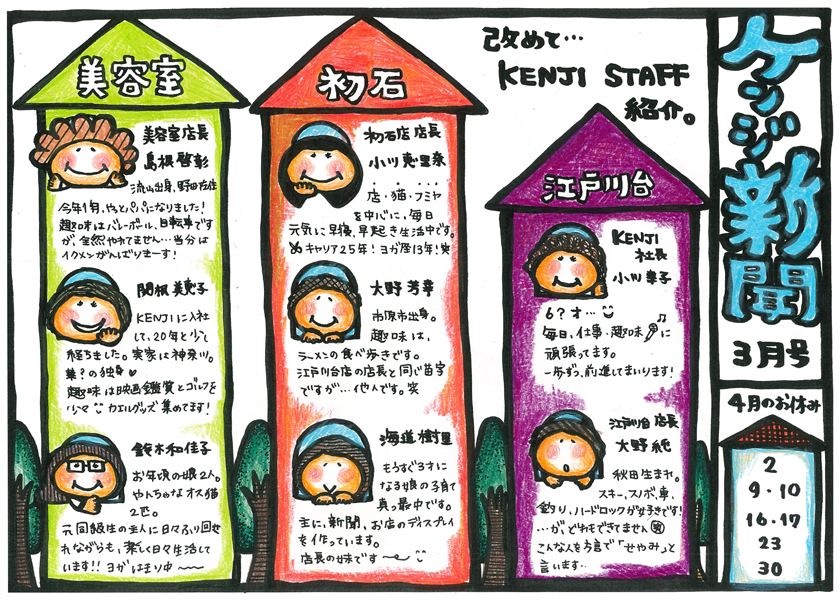 ケンジ新聞
3月号
改めて…
KENJI STAFF
紹介。
美容室
美容室店長
島根啓彰
流山出身、野田在住
今年1月、やっとパパになりました!
趣味はバレーボール、自転車です
が全然やれてません…当分は
イクメンがんばりまーす!
関根美恵子
KENJIに入社
して、20年と少し
経ちました。実家は神奈川。
華?の独身♥
趣味は映画鑑賞とゴルフを
少々 カエルグッズ集めてます!
鈴木和佳子
お年頃の娘2人。
やんちゃなオス猫
2匹。
元同級生の主人に日々ふり回せ
れながらも、楽しく日々生活して
います!!ヨガはまり中〜〜
初石
初石店 店長
小川恵里奈
店・猫・フミヤ
を中心に、毎日
元気に早寝、早起き生活中です。
キャリア25年!ヨガ歴13年!笑
大野芳幸
市原市出身。
趣味は、
ラーメンの食べ歩きです。
江戸川台店の店長と同じ苗字
ですが…他人です。笑
海道樹里
もうすぐ3才に
なる娘の子育て
真っ最中です。
主に、新聞、お店のディスプレイ
を作っています。
店長の妹です〜
江戸川台
KENJI
社長
小川幸子
6?才…
毎日、仕事・趣味♪に
頑張ってます。
一歩ずつ、前進してまいります!
江戸川台店長
大野純
秋田生まれ。
スキー、スノボ、車、
釣り、ハードロックが好きです!
…が、どれもできてません 笑
こんな人を方言で「せやみ」と
言います…
4月のお休み
2
9・10
16・17
23
30